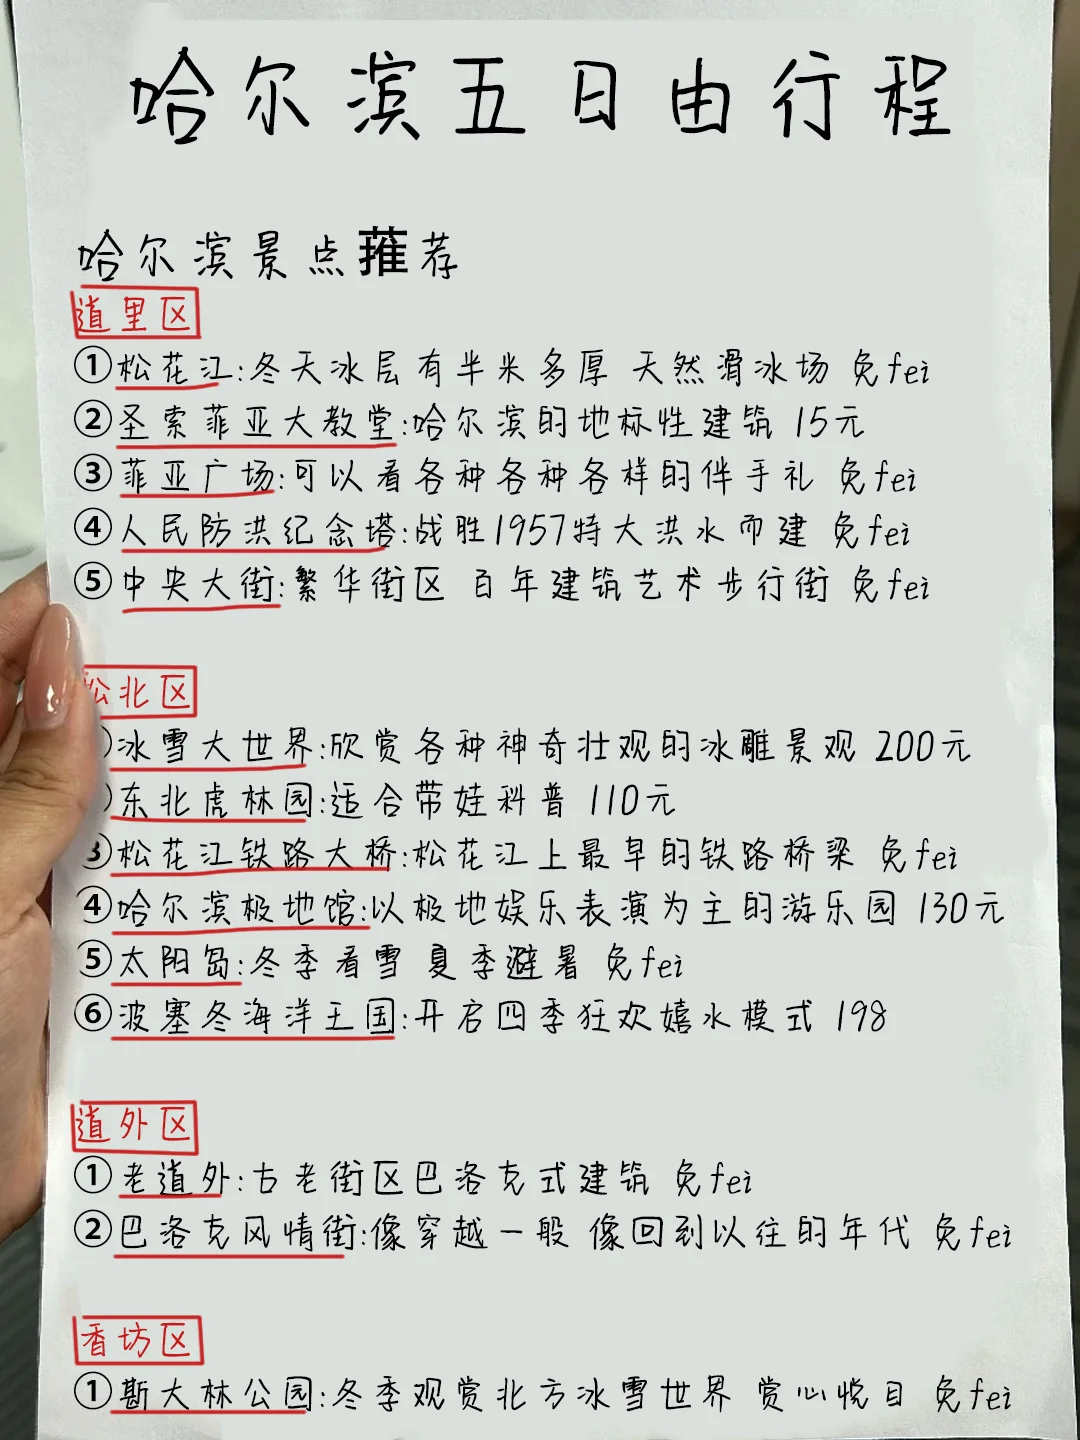 哈尔滨五日由行程
哈尔滨景点蓷荐
道里区
①松花江:冬天冰层有半米多厚 天然滑冰场 免fei
②圣索菲亚大教堂:哈尔滨的地标性建筑 15元
③菲亚广场:可以看各种各种各样的伴手礼 免fei
④人民防洪纪念塔:战胜1957特大洪水而建 免fei
⑤中央大街:繁华街区 百年建筑艺术步行街 免fei
松北区
冰雪大世界:欣赏各种神奇壮观的冰雕景观 200元
东北虎林园:适合带娃科普 110元
③松花江铁路大桥:松花江上最早的铁路桥梁 免fei
④哈尔滨极地馆:以极地娱乐表演为主的游乐园 130元
⑤太阳岛:冬季看雪 夏季避暑 免fei
⑥波塞冬海洋王国:开启四季狂欢嬉水模式 198
道外区
①老道外:古老街区巴洛克式建筑 免fei
②巴洛克风情街:像穿越一般 像回到以往的年代 免fei
香坊区
①斯大林公园:冬季观赏北方冰雪世界 赏心悦目 免fei